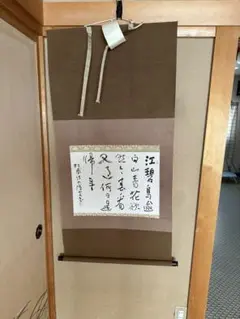 江碧鳥逾
白山青花欲
然今春看
又過何日是
帰年